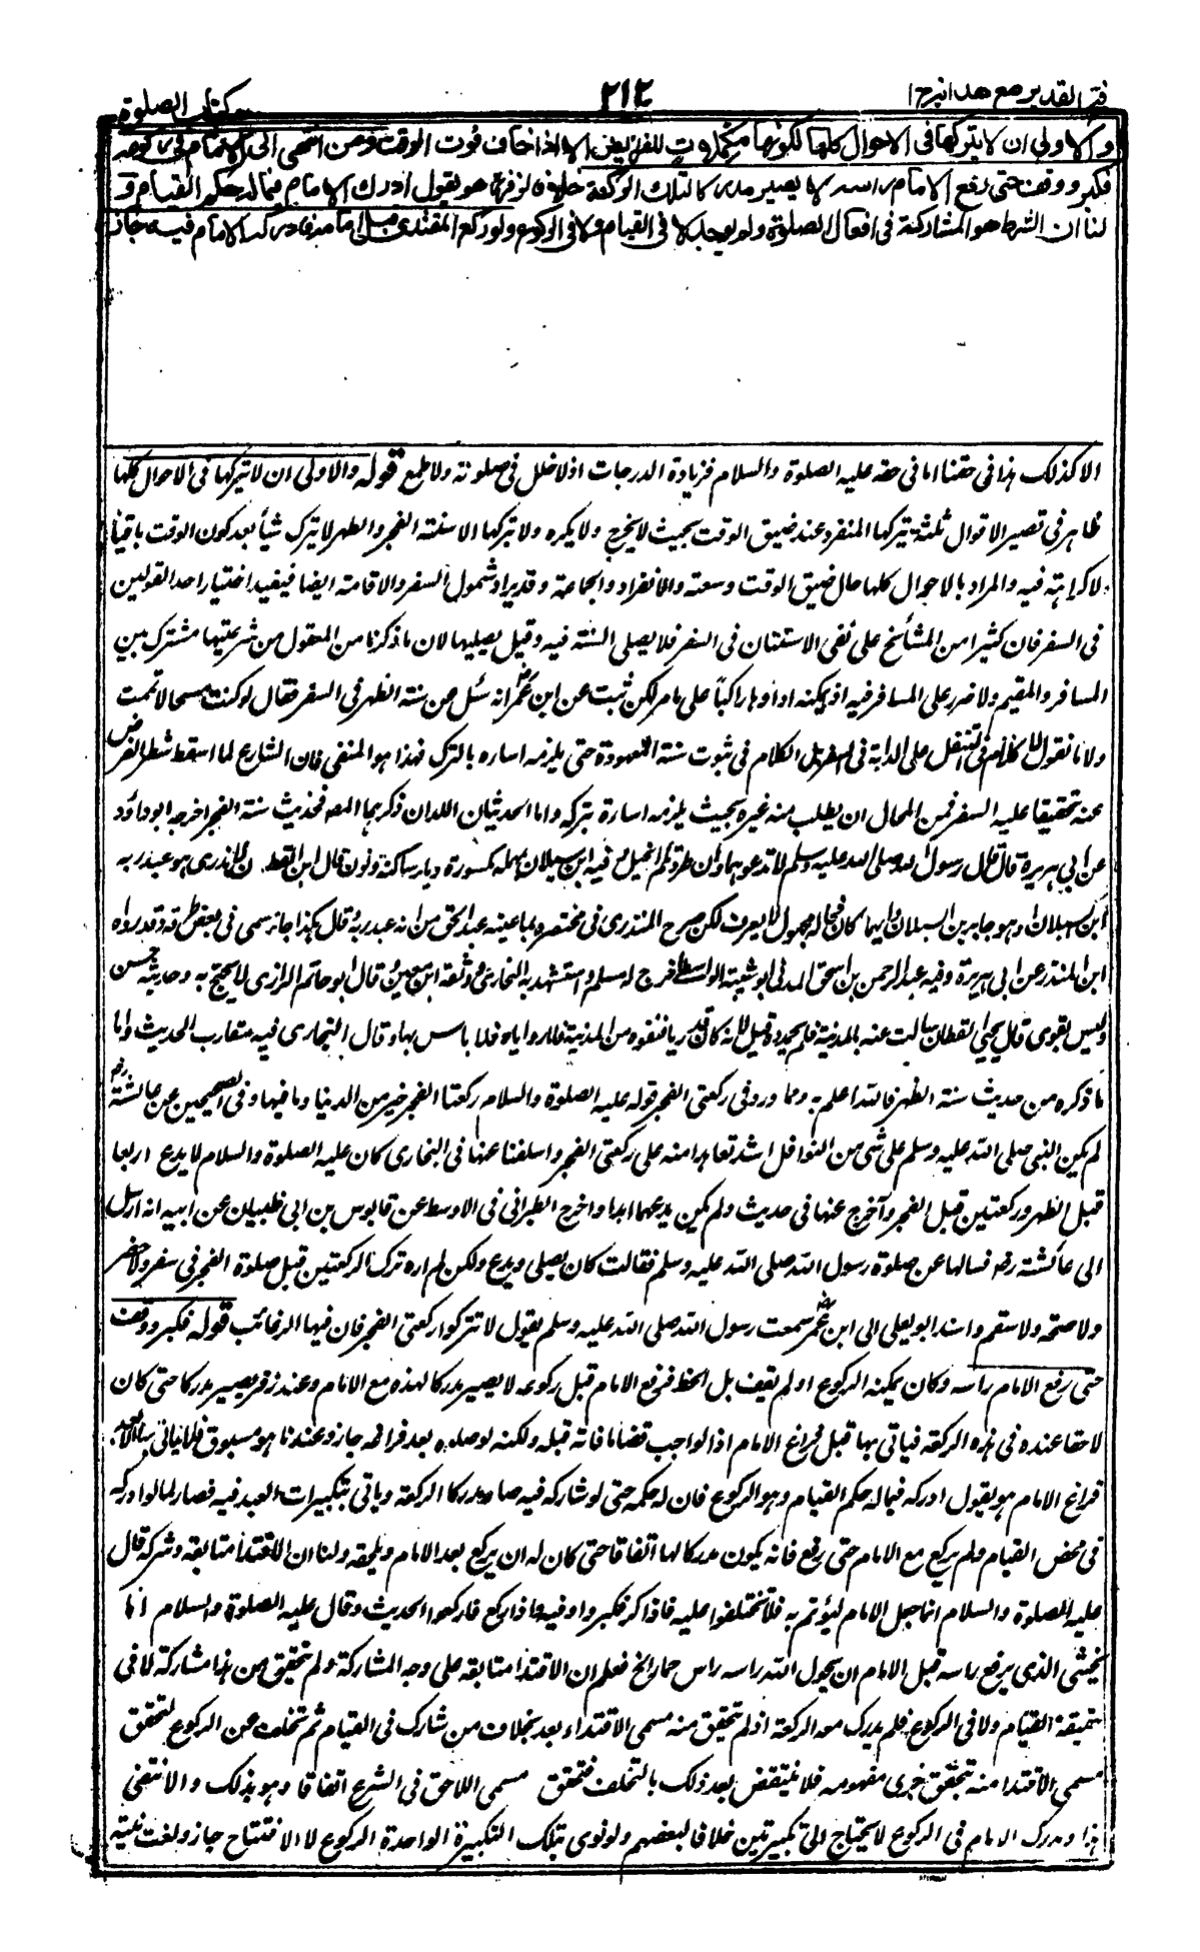 فتح القدير مع هدايه ج ١
٢١٢
كتاب الصلوة
والاولى ان لا يتركها في الاحوال كلها لكونها مكملات للفرائض الا اذا خاف فوت الوقت ومن انتهى الى الامام في ركوعه
فكبر ووقف حتى رفع الامام راسه لا يصير مدركا لتلك الركعة خلافا لزفر هو يقول ادرك الامام فيما له حكم القيام و
لنا ان الشرط هو المشاركة في افعال الصلوة ولم يوجد لا في القيام ولا في الركوع ولو ركع المقتدي قبل امامه فادركه الامام فيه جاز
الا كذلك هذا في حقنا اما في حقه عليه الصلوة والسلام فزيادة الدرجات اذ لا خلل في صلوته ولا طمع قوله والاولى ان لا يتركها في الاحوال كلها
ظاهر في تصير الاقوال ثلثة يتركها المنفرد عند ضيق الوقت بحيث لا يخرج ولا يكره ولا يتركها الا سنة الفجر والظهر لا يترك شيأ بعد كون الوقت باقيا
لا كراهة فيه والمراد بالاحوال كلها حال ضيق الوقت وسعته والانفراد والجماعة وقد يراد شمول السفر والاقامة ايضا فيفيد اختيار احد القولين
في السفر فان كثيرا من المشائخ على نفي الاستنان في السفر فلا يصلى السنة فيه وقيل يصليها لان ما ذكرنا من المعقول من شرعيتها مشترك بين
المسافر والمقيم ولا ضرر على المسافر فيه اذ يمكنه اداؤها راكبا على ما مر لكن ثبت عن ابن عمر انه سئل عن سنة الظهر في السفر فقال لو كنت مسبحا لاتممت
ولانا نقول لا كلام في التنفل على الدابة في السفر بل الكلام في ثبوت سنة المعهودة حتى يلزمه اساءة بالترك فهذا هو المنفي فان الشارع لما اسقط شطر الفرض
عنه تخفيفا عليه السفر فمن المحال ان يطلب منه غيره بحيث يلزمه اساءة بتركه واما الحديثان اللذان ذكرهما المصـ فحديث سنة الفجر اخرجه ابو داؤد
عن ابي هريرة قال قال رسول الله صلى الله عليه وسلم لا تدعوهما وان طردتكم الخيل وفيه ابن سيلان بمهملة مكسورة وياء ساكنة ونون قال ابن القطان
ابن سيلان او هو جابر بن سيلان وايهما كان فحاله مجهول لا يعرف لكن صرح المنذري في مختصره بما عينه عبد الحق من انه عبد ربه قال هكذا جاء مسمى في بعض طرقه وقد رواه
ابن المنكدر عن ابي هريرة وفيه عبد الرحمن بن اسحق المدني ابو شيبة الواسطي اخرج له مسلم واستشهد به البخاري ووثقه ابن معين قال ابو حاتم الرازي لا يحتج به وحديثه حسن
وليس بقوي قال يحيى القطان سالت عنه بالمدينة فلم يحمدوه قيل لانه كان قدريا فنفوه من المدينة فاما رواياته فلا باس بها وقال البخاري فيه مقارب الحديث واما
ما ذكره من حديث سنة الظهر فالله اعلم به ومما ورد في ركعتي الفجر قوله عليه الصلوة والسلام ركعتا الفجر خير من الدنيا وما فيها وفي الصحيحين عن عائشة رض
لم يكن النبي صلى الله عليه وسلم على شئ من النوافل اشد تعاهدا منه على ركعتي الفجر واسلفنا عنها في البخاري كان عليه الصلوة والسلام لا يدع اربعا
قبل الظهر وركعتين قبل الفجر وآخرج عنها في حديث ولم يكن يدعهما ابدا واخرج الطبراني في الاوسط عن قابوس بن ابي ظبيان عن ابيه انه ارسل
الى عائشة رضـ فسالها عن صلوة رسول الله صلى الله عليه وسلم فقالت كان يصلي ويدع ولكن لم اره ترك الركعتين قبل صلوة الفجر في سفر ولا حضر
ولا صحة ولا سقم واسند ابو يعلى الى ابن عمر سمعت رسول الله صلى الله عليه وسلم يقول لا تتركوا ركعتي الفجر فان فيها الرغائب قوله فكبر ووقف
حتى رفع الامام راسه وكان يمكنه الركوع او لم يقف بل انحط فرفع الامام قبل ركوعه لا يصير مدركا لهذه مع الامام وعند زفر يصير مدركا حتى كان
لاحقا عنده في هذه الركعة فياتي بها قبل فراغ الامام اذ الواجب قضاء ما فاته قبله ولكنه لو صلاه بعد فراغه جاز وعندنا هو مسبوق فلا ياتي بها الا بعد
فراغ الامام هو يقول ادركه فيما له حكم القيام وهو الركوع فان له حكمه حتى لو شاركه فيه صار مدركا الركعة وياتي بتكبيرات العيد فيه فصار كما لو ادركه
في محض القيام ولم يركع مع الامام حتى رفع فانه يكون مدركا لها اتفاقا حتى كان له ان يركع بعد الامام ويلحقه ولنا ان الاقتداء متابعة وشركة قال
عليه الصلوة والسلام انما جعل الامام ليؤتم به فلا تختلفوا عليه فاذا كبر فكبروا وفيه واذا ركع فاركعوا الحديث وقال عليه الصلوة والسلام اما
يخشى الذي يرفع راسه قبل الامام ان يحول الله راسه راس حمار الخ فعلم ان الاقتداء متابعة على وجه المشاركة ولم تتحقق من هذا مشاركة لا في
حقيقة القيام ولا في الركوع فلم يدرك معه الركعة اذ لم يتحقق منه مسمى الاقتداء بعد بخلاف من شارك في القيام ثم تخلف عن الركوع لتحقق
مسمى الاقتداء منه بتحقق جزء مفهومه فلا ينتقض بعد ذلك بالتخلف لتحقق مسمى اللاحق في الشرع اتفاقا وهو بذلك والا انتفى
هذا ومدرك الامام في الركوع لا يحتاج الى تكبيرتين خلافا لبعضهم ولو نوى بتلك التكبيرة الواحدة الركوع لا الافتتاح جاز ولغت نيته